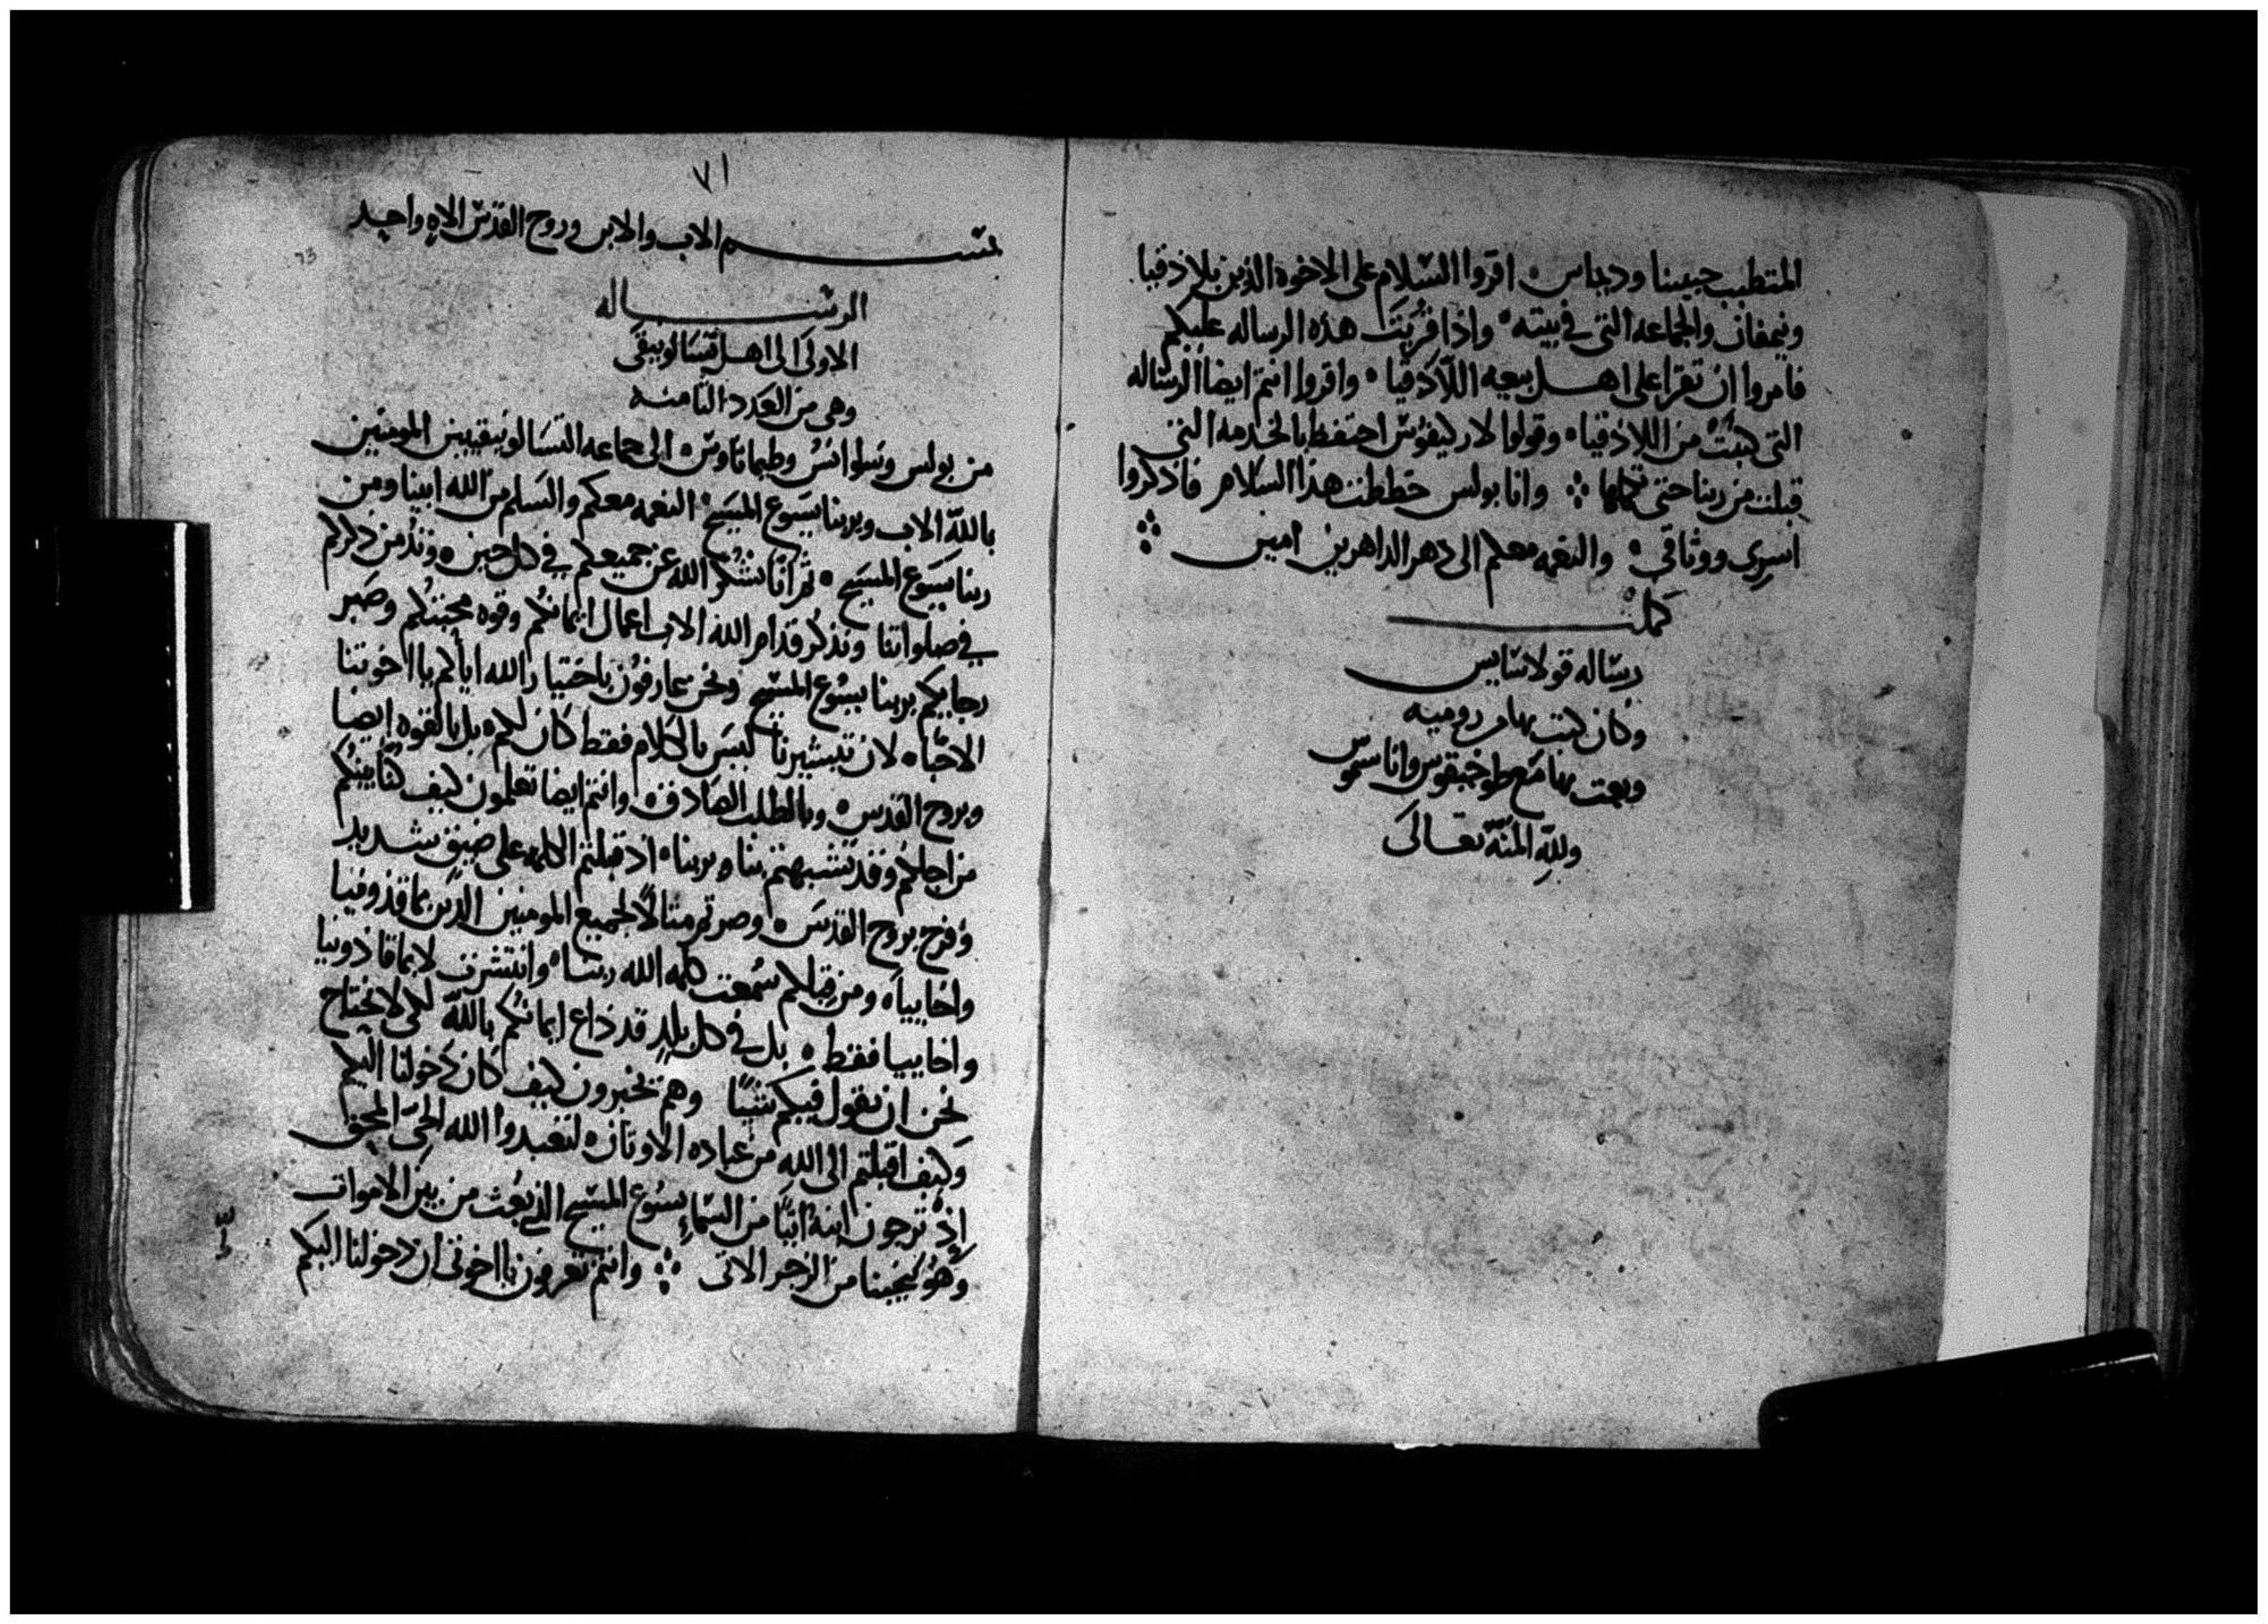 المتطبب حبيبنا وديماس ۰ اقروا السلام على الاخوه الذين بلاذقيا
ونمفان والجماعه التي في بيته ۰ واذا قُرِيَت هذه الرساله عليكم
فامروا ان تقرا على اهل بيعه اللاذقيا ۰ واقروا انتم ايضا الرساله
التي كُتِبَتْ من اللاذقيا ۰ وقولوا لارليفوس احتفظ بالخدمه التي
قبلت من ربنا حتى تكملها ⁘ وانا بولس خططت هذا السلام فاذكروا
اسرى ووثاقي ۰ والنعمه معكم الى دهر الداهرين امين ⁘
كملت
رساله قولاسايس
وكان كتب بها من روميه
وبعث بها مع طوخيقوس واناسموس
وللهِ المنّة تعالى
٧١
73
بسم الاب والابن وروح القدس الاه واحد
الرساله
الاولى الى اهل تسالونيقى
وهى من العدد الثامنه
من بولس وسلوانس وطيماتاوس ۰ الى جماعه التسالونيقيين المومنين
بالله الاب وبربنا يسوع المسيح ۰ النعمه معكم والسلم من الله ابينا ومن
ربنا يسوع المسيح ۰ ثم انا نشكر الله عن جميعكم في كل حين ۰ ونذمن ذكركم
في صلواتنا ونذكر قدام الله الاب اعمال ايمانكم وقوه محبتكم وصبر
رجايكم بربنا يسوع المسيح ونحن عارفون باختيار الله اياكم يا اخوتنا
الاحبا ۰ لان تبشيرنا ليس بالكلام فقط كان لكم ۰ بل بالقوه ايضا
وبروح القدس ۰ وبالطلب الصادق ۰ وانتم ايضا تعلمون كيف كنا بينكم
من اجلكم وقد تشبهتم بنا وبربنا ۰ اذ قبلتم الكلمه على ضيق شديد
وفرح بروح القدس ۰ وصرتم مثالًا لجميع المومنين الذين بماقذونيا
واخاييا ۰ ومن قبلكم سُمِعت كلمه الله ربنا ۰ وانتشرت لا بماقاذونيا
واخاييا فقط ۰ بل في كل بلدٍ قد ذاع ايمانكم بالله لكى لا نحتاج
نحن ان نقول فيكم شيئًا وهم يخبرون كيف كان دخولنا اليكم
وكيف اقبلتم الى اللهِ من عباده الاوثان ۰ لتعبدوا الله الحيّ المحق
اِذْ ترجون ابنهُ اتيًا من السماءِ يسوع المسيح الذي بُعث من بين الاموات
وهُو يُنجينا من الزجر الاتى ⁘ وانتم تعرفون يا اخوتى ان دخولنا اليكم